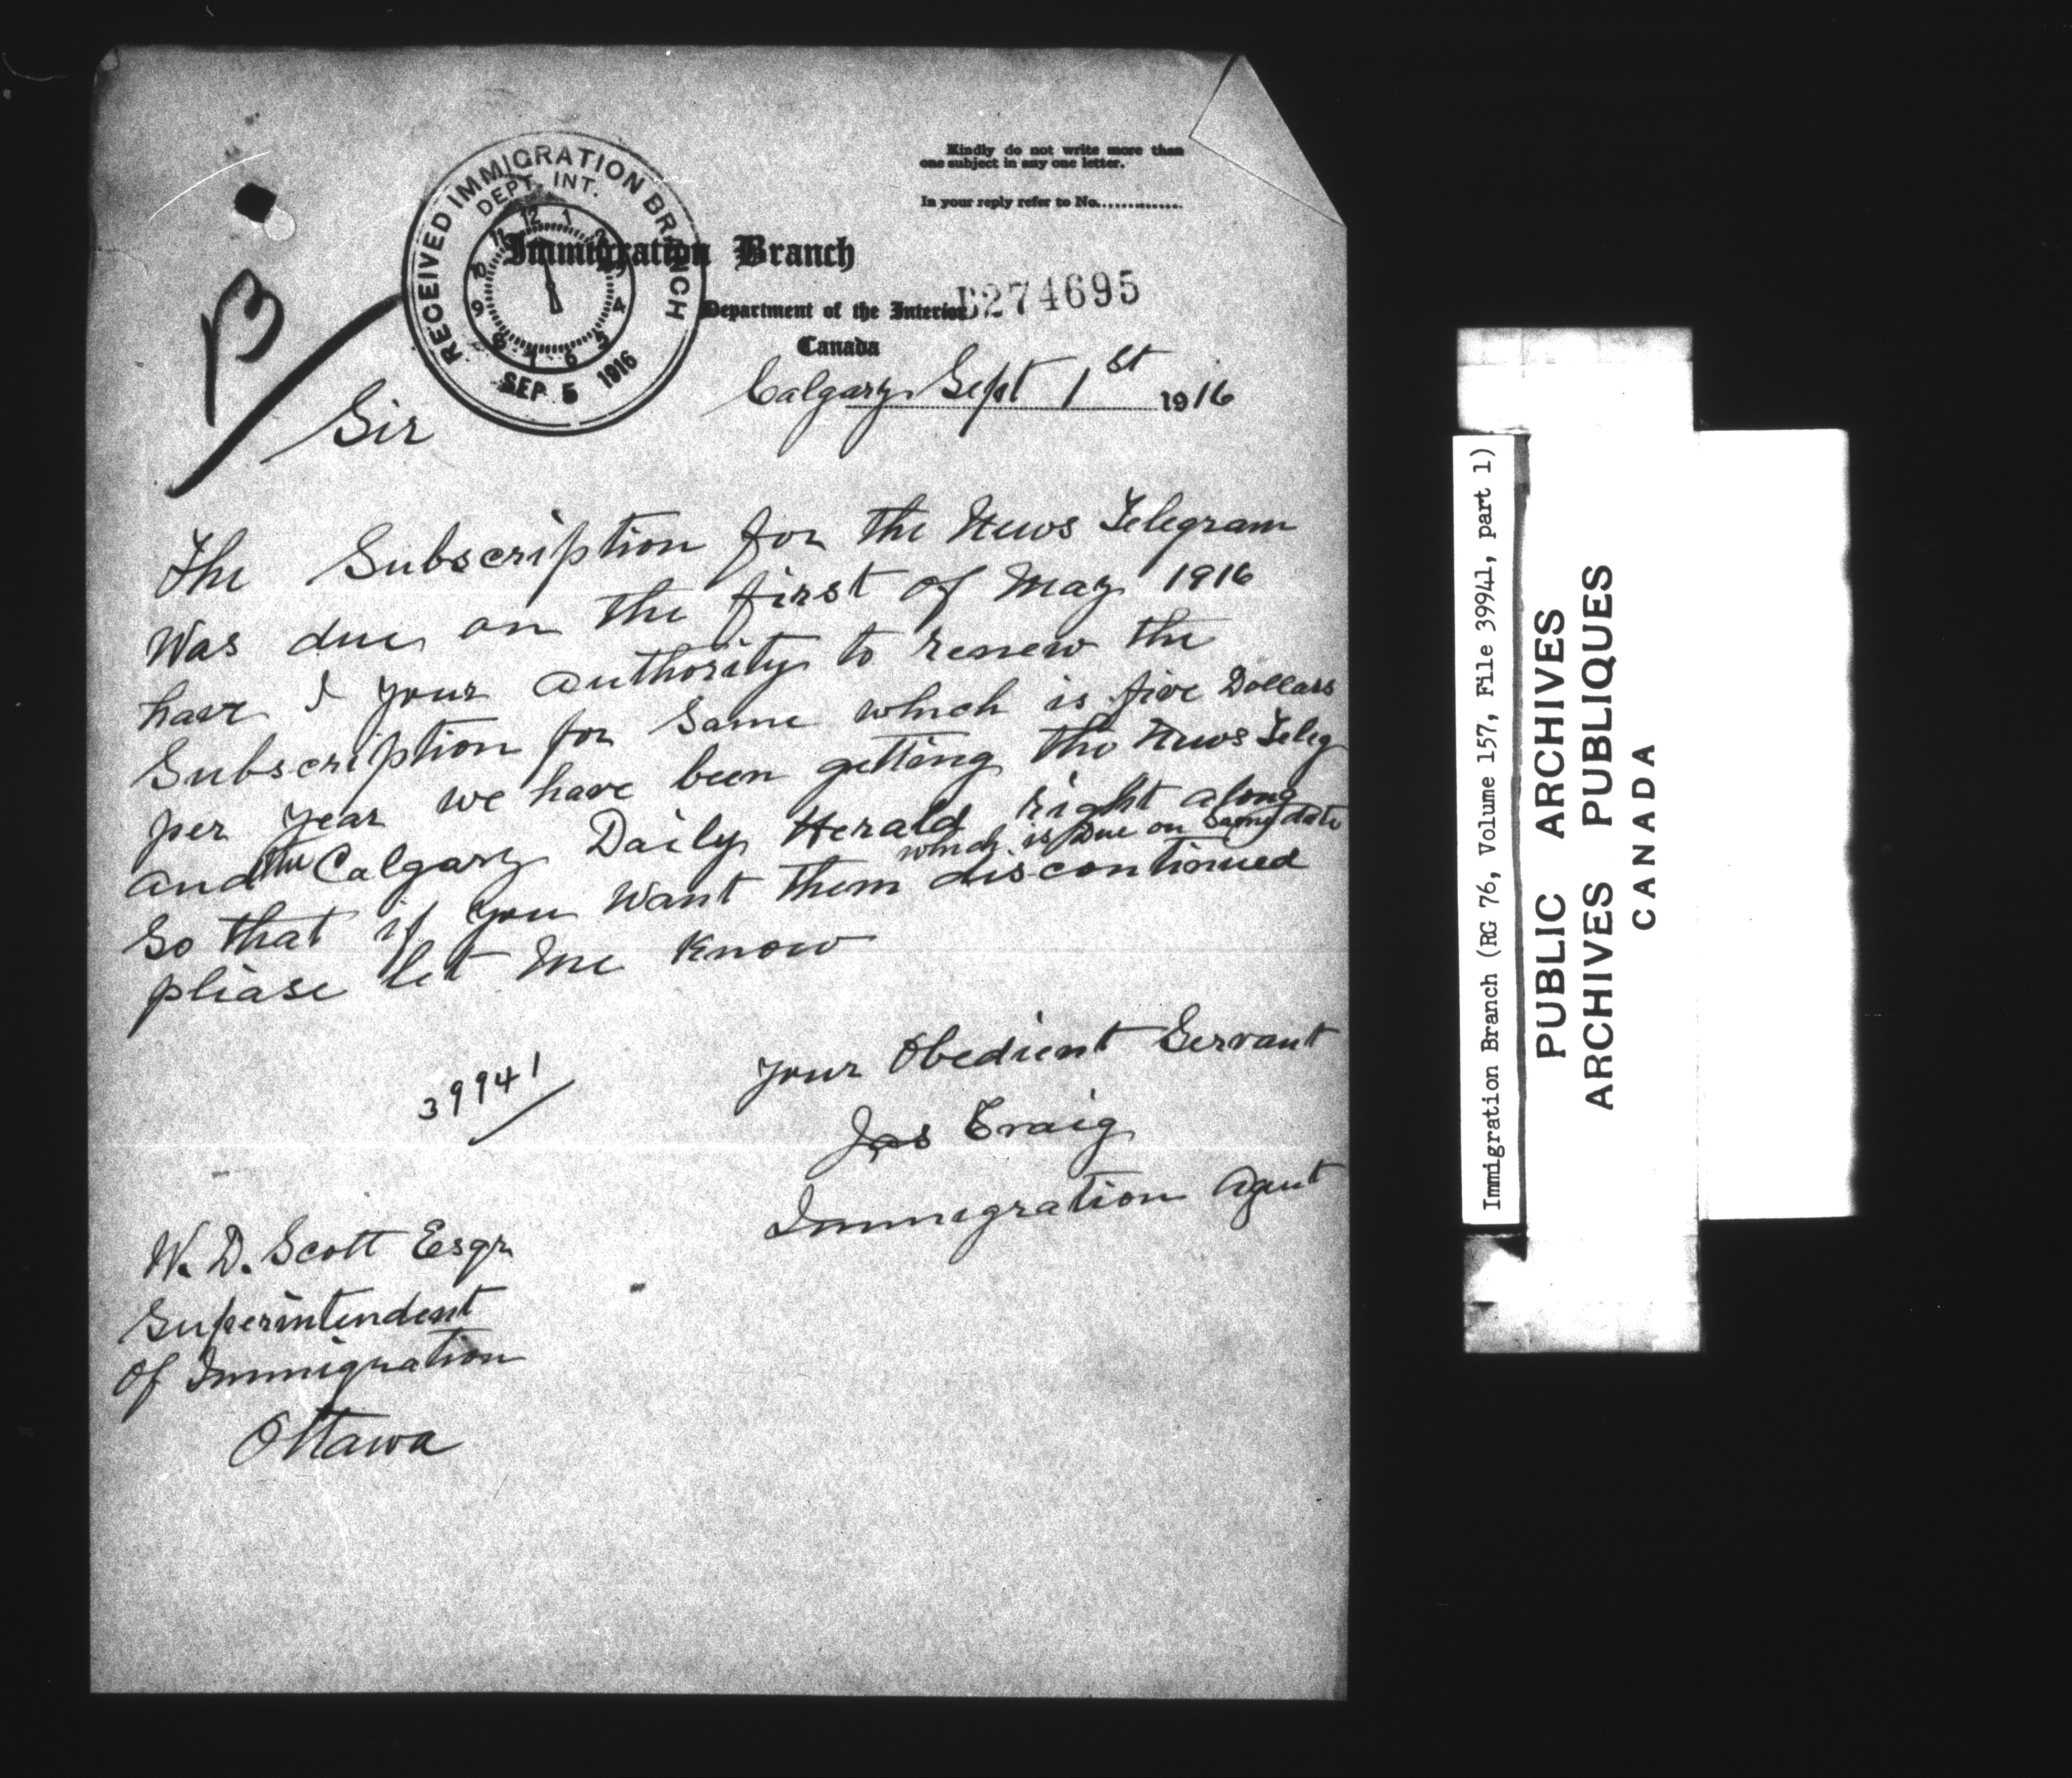 Kindly do not write more than
one subject in any one letter.
In your reply refer to No..............
RECEIVED IMMIGRATION BRANCH
DEPT. INT.
12 1 2 4 5 6 7 8 9 10 11
SEP 5 1916
Immigration Branch
Department of the Interior
274695
Canada
B
Calgary Sept 1st 1916
Sir
The Subscription for the News Telegram
Was due on the first of May 1916
have I your authority to renew the
Subscription for same which is five Dollars
per year we have been getting the News Teleg
and the Calgary Daily Herald right along
which is Due on Same date
So that if you want them discontinued
please let me know
39941
your Obedient Servant
Jas Craig
Immigration Agent
W. D. Scott Esqr
Superintendent
Of Immigration
Ottawa
Immigration Branch (RG 76, Volume 157, File 39941, part 1)
PUBLIC ARCHIVES
ARCHIVES PUBLIQUES
CANADA